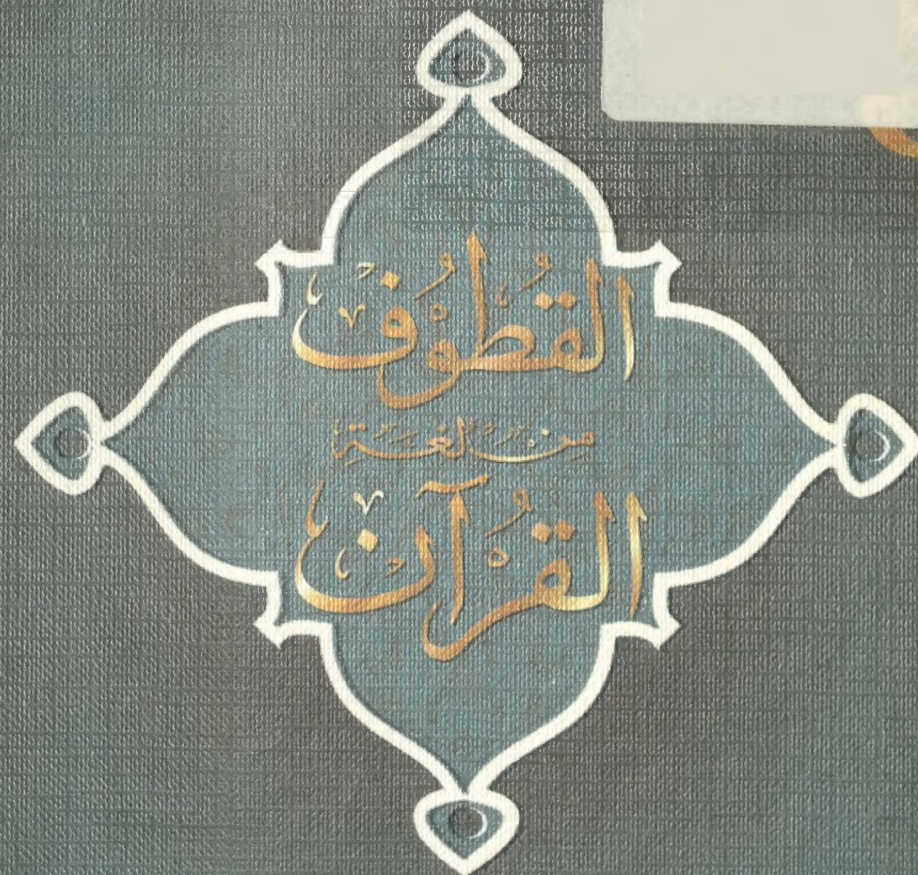 القُطُوُف
مِنْ لُغَةِ
القُرْآن